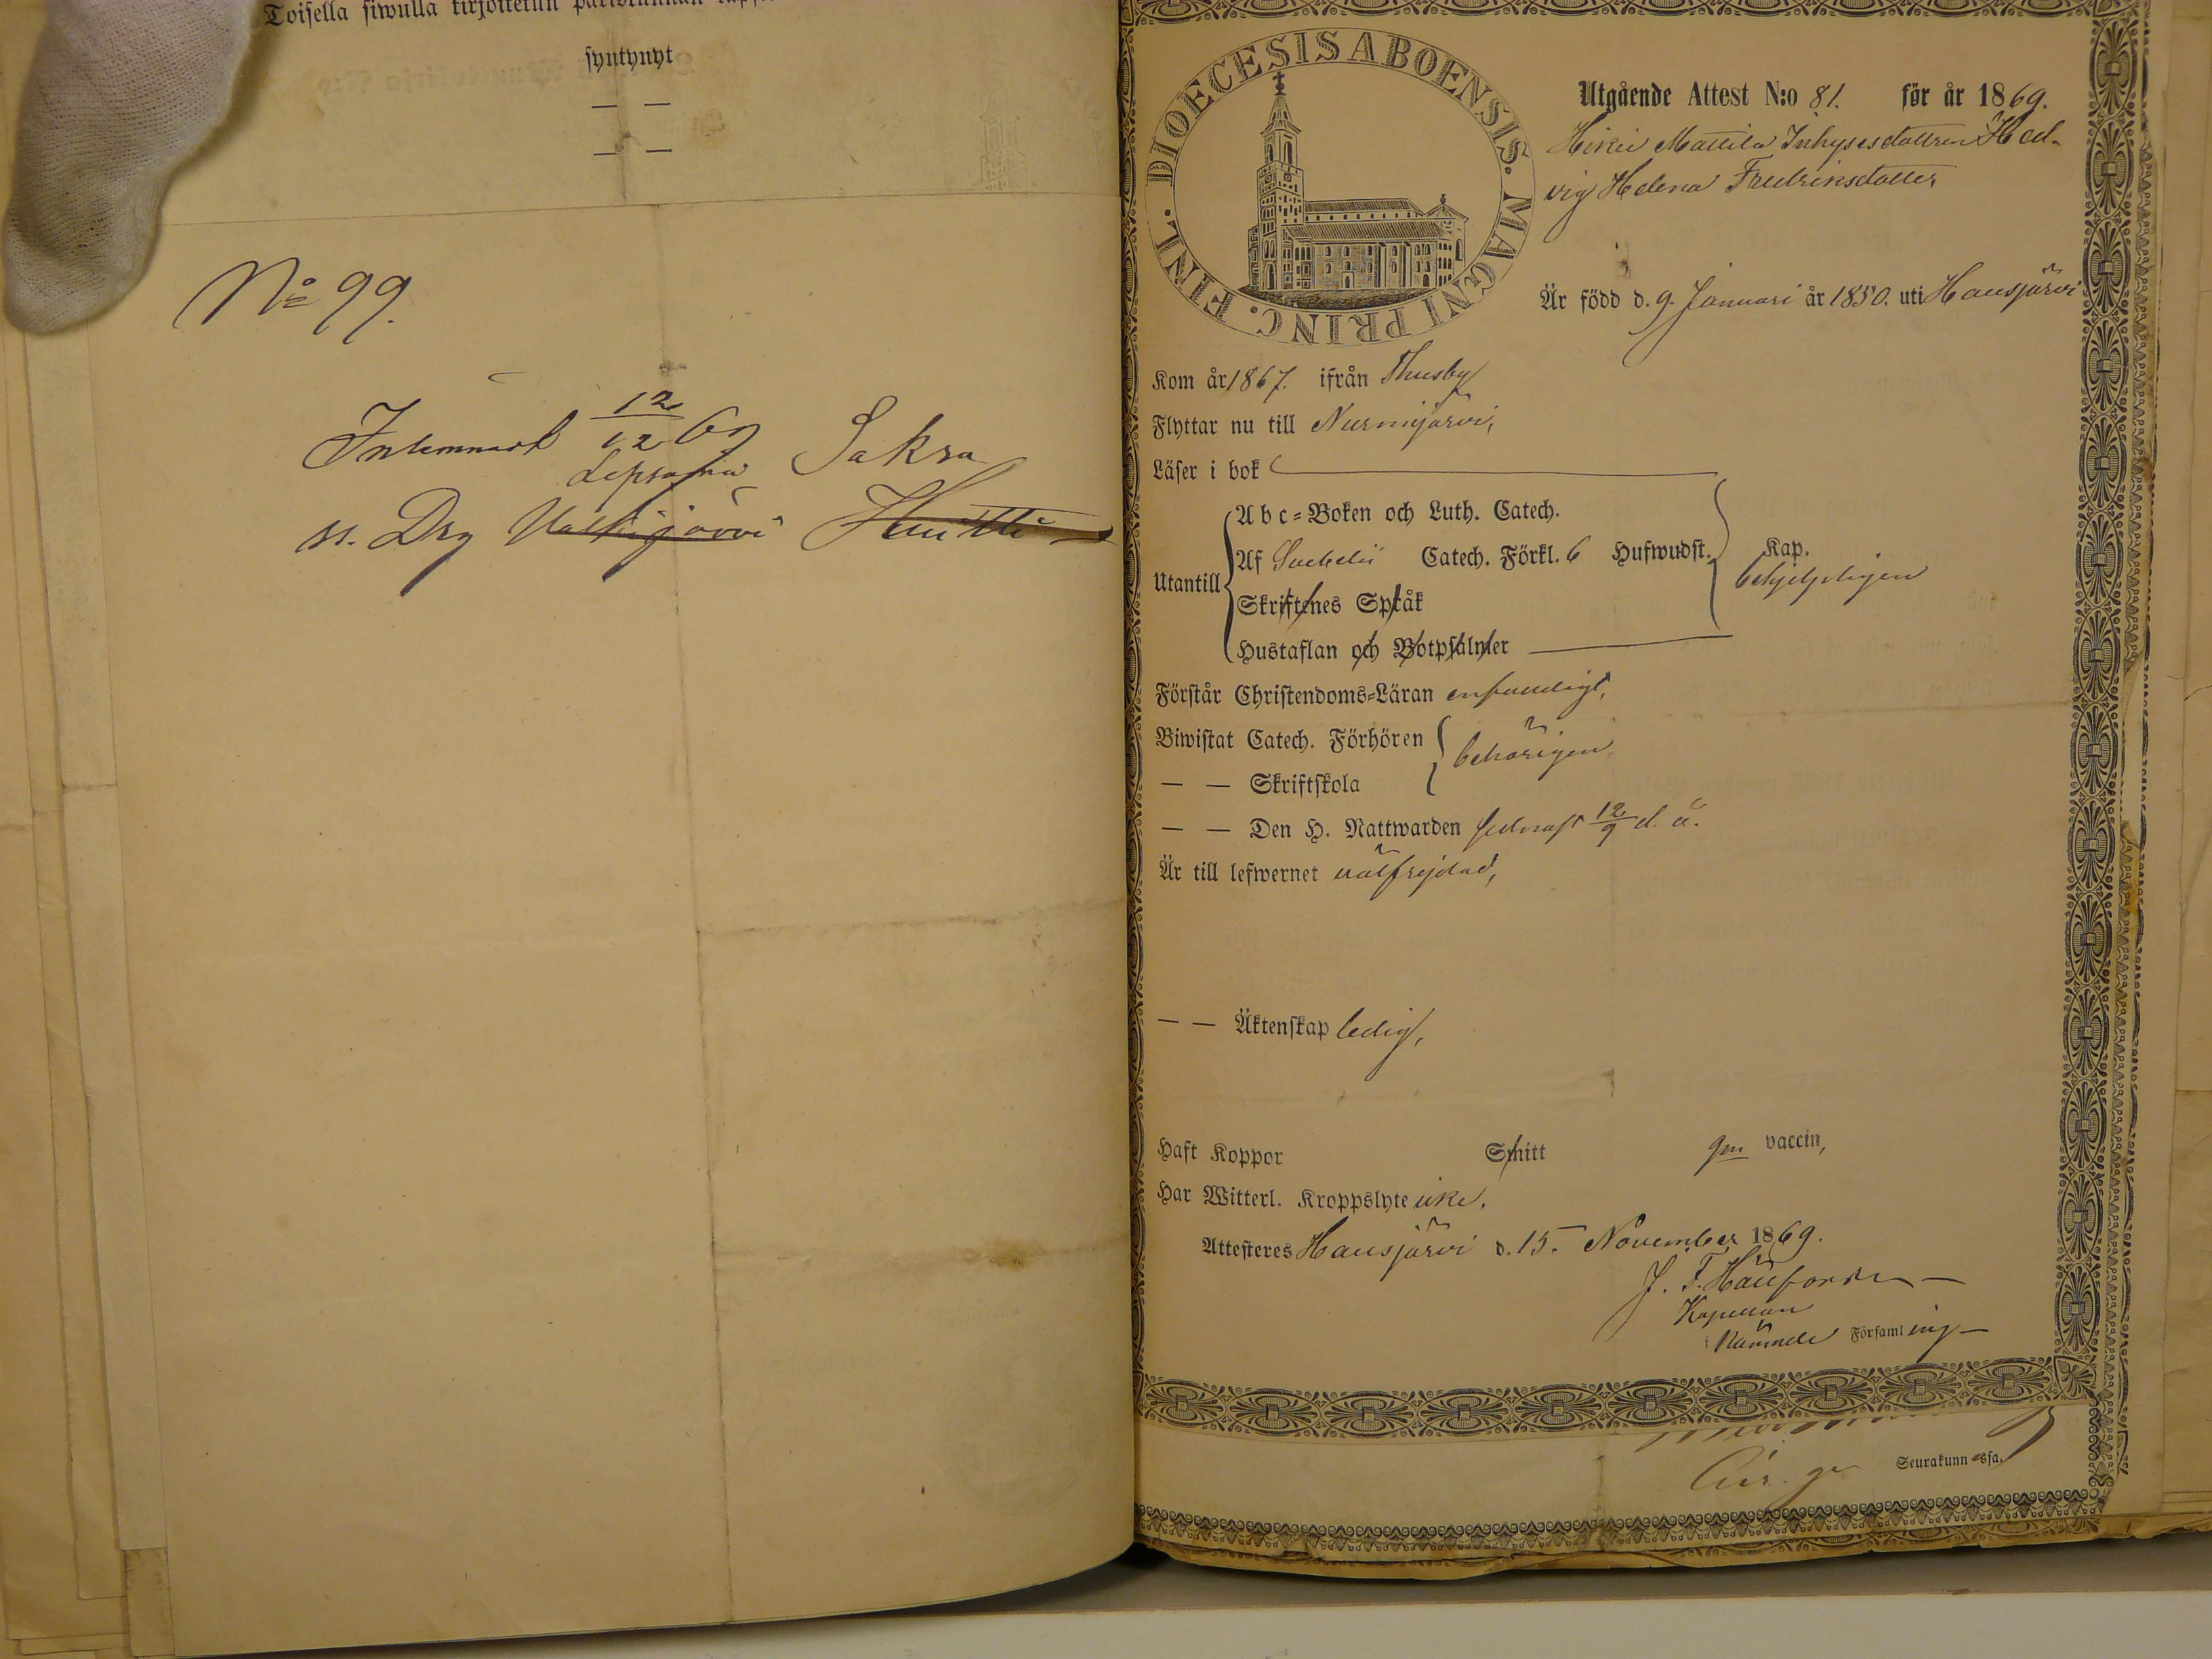 Toisella siwulla kirjoitetun
syntynyt
— —
— —
No 99.
Inlemnadt 12/12 69 Sakra
Lepsama
n. Drg Valkjärvi Huitti
DIOECESIS ABOENSIS. MAGNI PRINC. FINL.
Utgående Attest N:o 81. för år 1869.
Hikiä Mattila Inhysesdottren Hed-
vig Helena Fredriksdotter
Är född d. 9. Januari år 1850. uti Hausjärvi
Kom år 1867. ifrån Thusby
Flyttar nu till Nurmijärvi,
Läser i bok
Abc=Boken och Luth. Catech.
Utantill Af Svebelii Catech. Förkl. 6 Hufwudst. Kap.
behjelpligen
Skriftenes Språk
Hustaflan och Botpsalmer
Förstår Christendoms=Läran enfaldigt,
Biwistat Catech. Förhören behörigen
— — Skriftskola
— — Den H. Nattwarden sednast 12/9 d. å.
Är till lefwernet välfrejdad,
— — Äktenskap ledig,
Haft Koppor Smitt gm vaccin,
Har Witterl. Kroppslyte icke.
Attesteres Hausjärvi d. 15. November 1869.
J. F.
Kapellan
Nämnde Församling
Seurakunnassa.